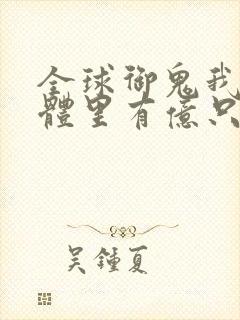 全球御鬼我
體里有億只
吴鍾夏